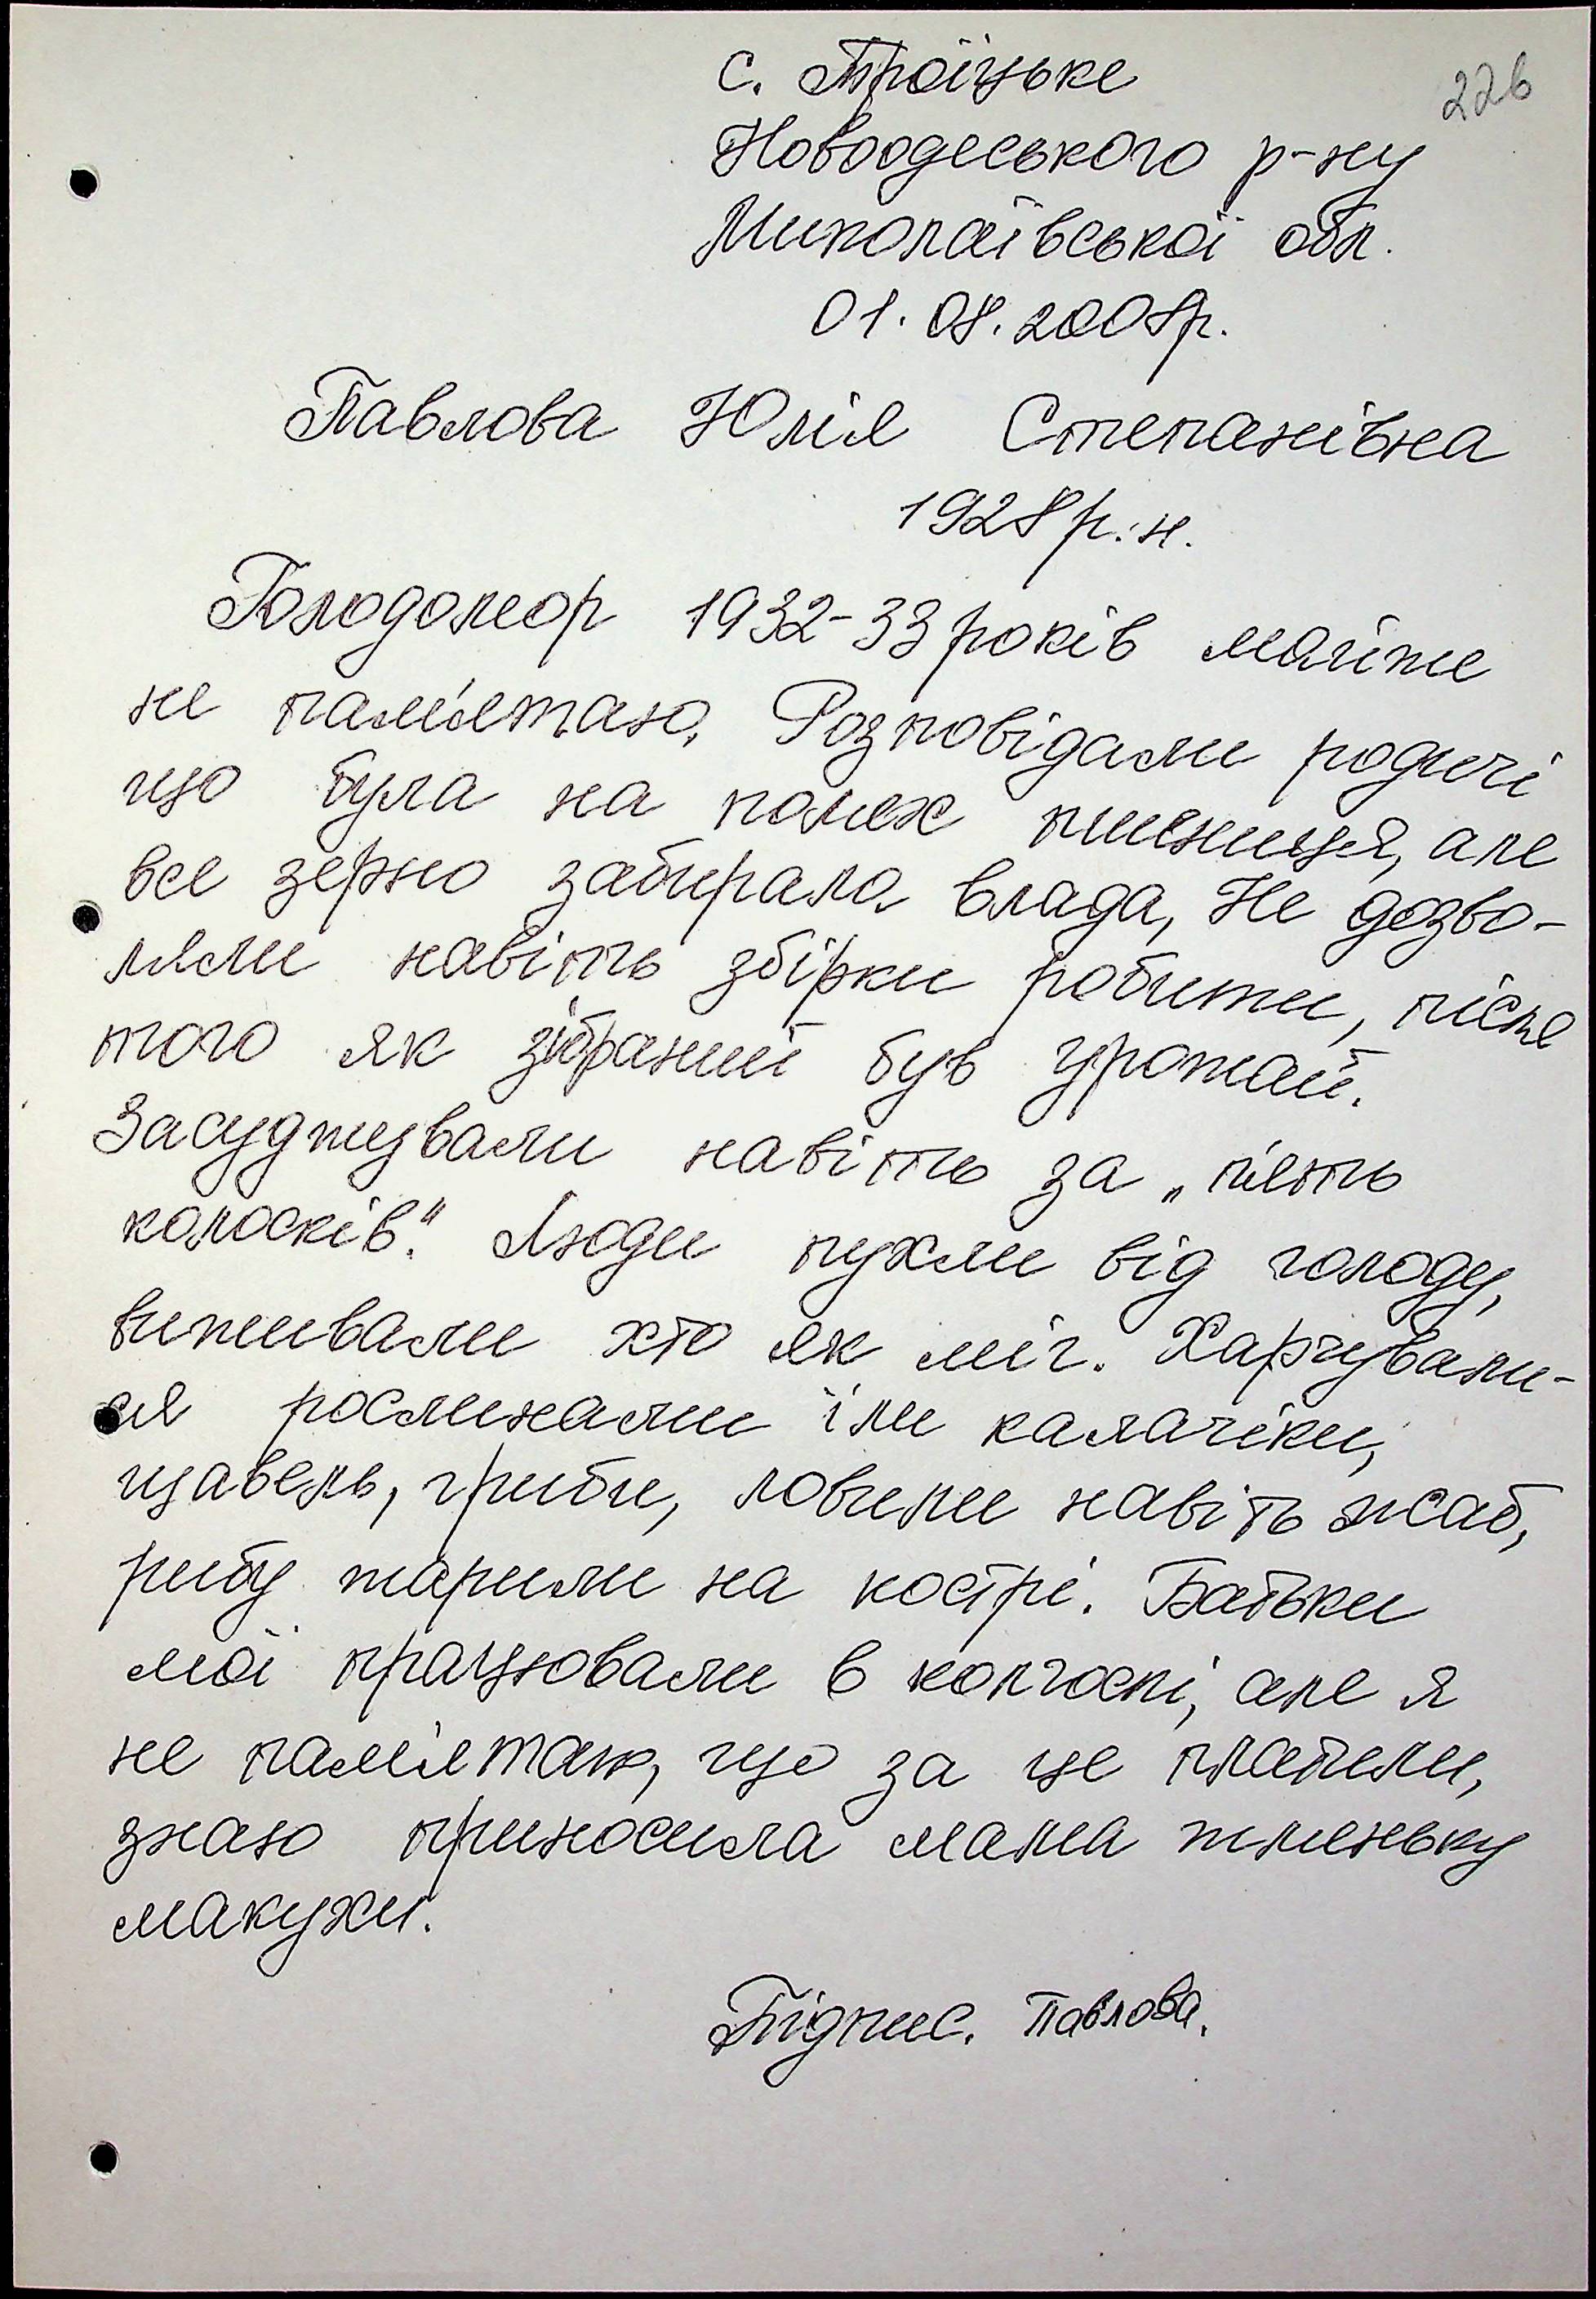 с. Троїцьке
226
Новоодеського р-ну
Миколаївської обл.
01.08.2008р.
Павлова Юлія Степанівна
1928р.н.
Голодомор 1932-33 років майже
не пам'ятаю. Розповідали родичі
що була на полях пшениця, але
все зерно забирала влада, Не дозво-
ляли навіть збірки робити, після
того як зібраний був урожай.
Засуджували навіть за „п'ять
колосків". Люди пухли від голоду,
виживали хто як міг. Харчували-
ся рослинами їли калачіки,
щавель, гриби, ловили навіть жаб,
рибу жарили на кострі. Батьки
мої працювали в колгоспі, але я
не пам'ятаю, що за це платили,
знаю приносила мама жменьку
макухи.
Підпис. Павлова.